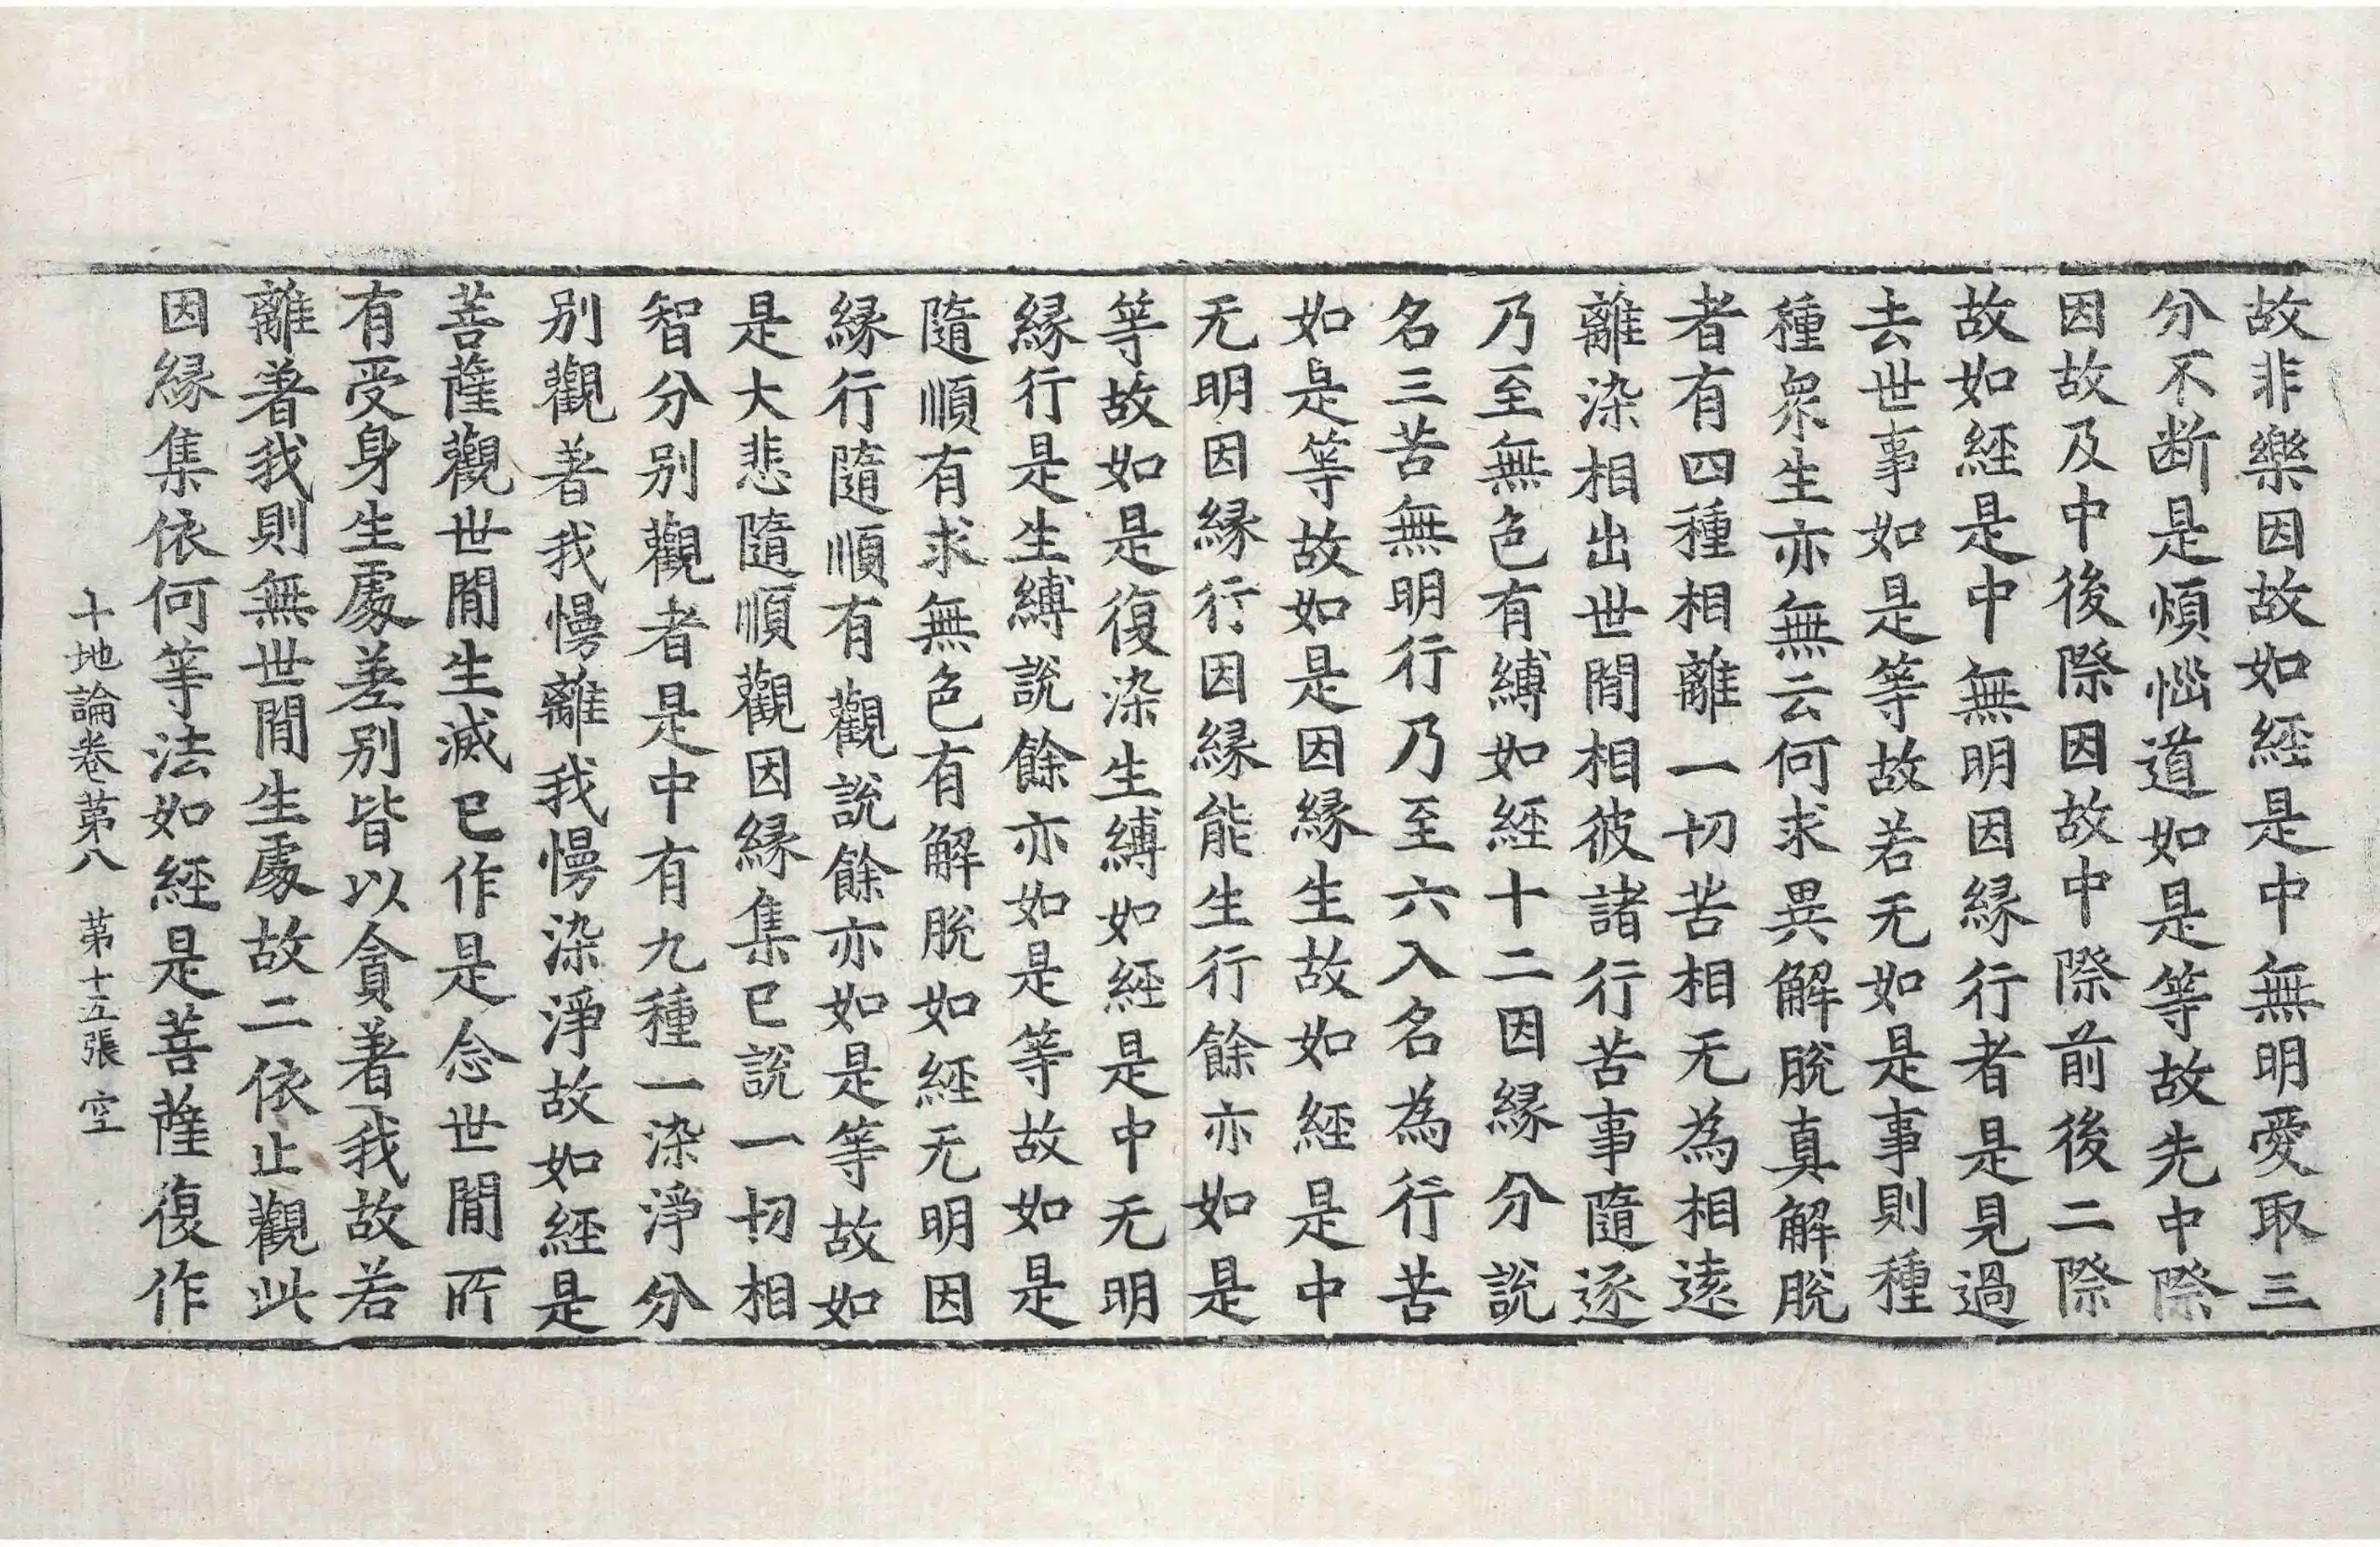 故非樂因故如經是中無明愛取三
分不断是煩惱道如是等故先中際
因故及中後際因故中際前後二際
故如經是中無明因緣行者是見過
去世事如是等故若无如是事則種
種衆生亦無云何求異解脫真解脫
者有四種相離一切苦相无為相遠
離染相出世間相彼諸行苦事隨逐
乃至無色有縛如經十二因緣分說
名三苦無明行乃至六入名為行苦
如是等故如是因緣生故如經是中
无明因緣行因緣能生行餘亦如是
等故如是復染生縛如經是中无明
緣行是生縛說餘亦如是等故如是
隨順有求無色有解脫如經无明因
緣行隨順有觀說餘亦如是等故如
是大悲隨順觀因緣集已說一切相
智分別觀者是中有九種一染淨分
別觀著我慢離我慢染淨故如經是
菩薩觀世間生滅已作是念世間所
有受身生處差別皆以貪著我故若
離著我則無世間生處故二依止觀此
因緣集依何等法如經是菩薩復作
十地論卷第八 第十五張 空